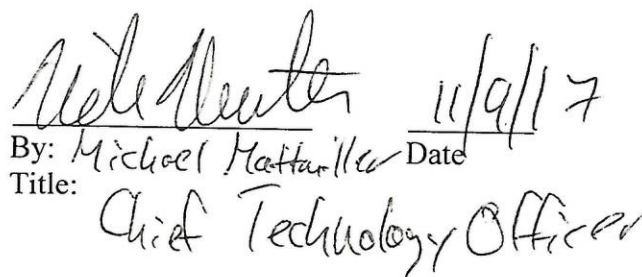 11/9/17
By: Michael Date
Title:
Chief Technology Officer